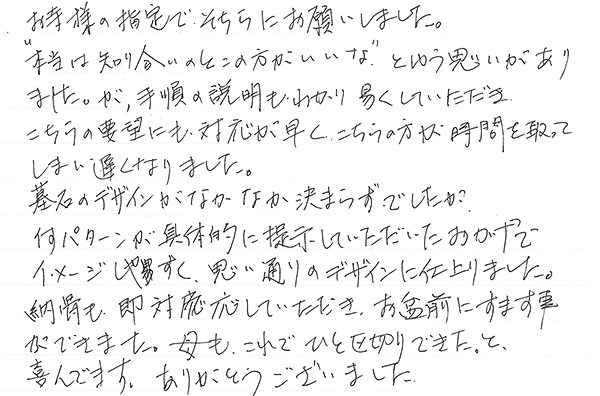 お寺様の指定でそちらにお願いしました。
"本当は知り合いのとこの方がいいな"という思いがあり
ました。が、手順の説明もわかり易くしていただき
こちらの要望にも対応が早く、こちらの方が時間を取って
しまい遅くなりました。
墓石のデザインがなかなか決まらずでしたが
何パターンか具体的に提示していただいたおかげで
イメージしやすく、思い通りのデザインに仕上りました。
納骨も、即対応していただき、お盆前にすます事
ができました。母も、これでひと区切りできた。と、
喜んでます。ありがとうございました。